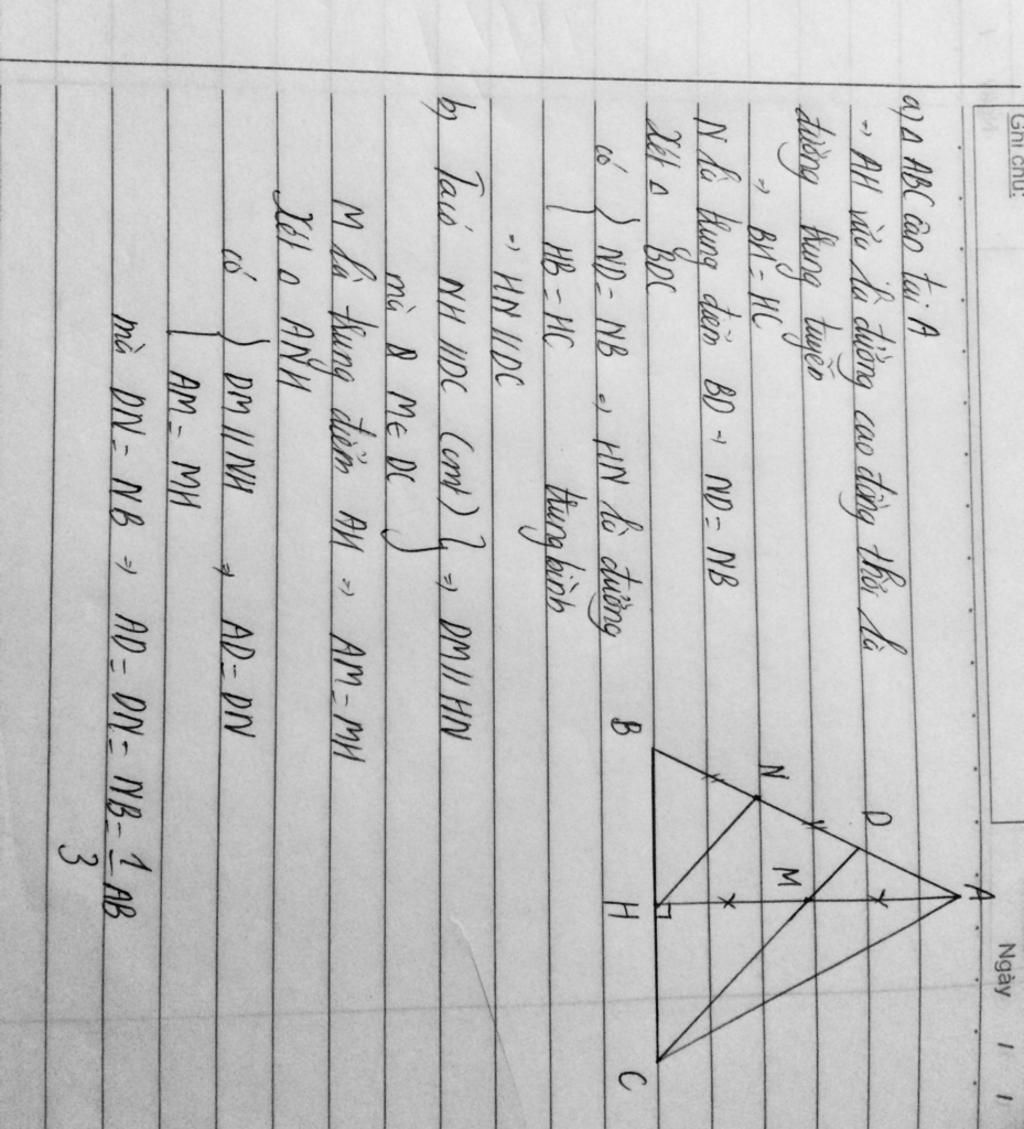 Ghi chú:
Ngày / /
a) Δ ABC cân tại A
⇒ AH vừa là đường cao đồng thời là
đường trung tuyến
⇒ BH = HC
N là trung điểm BD ⇒ ND = NB
Xét Δ BDC
có { ND = NB ⇒ HN là đường
HB = HC trung bình
⇒ HN // DC
b) Ta có NH // DC (cmt) } ⇒ DM // HN
mà M ∈ DC
M là trung điểm AH ⇒ AM = MH
Xét Δ ANH
có { DM // NH ⇒ AD = DN
AM = MH
mà DN = NB ⇒ AD = DN = NB = 1/3 AB
A
D
N
M
B
H
C